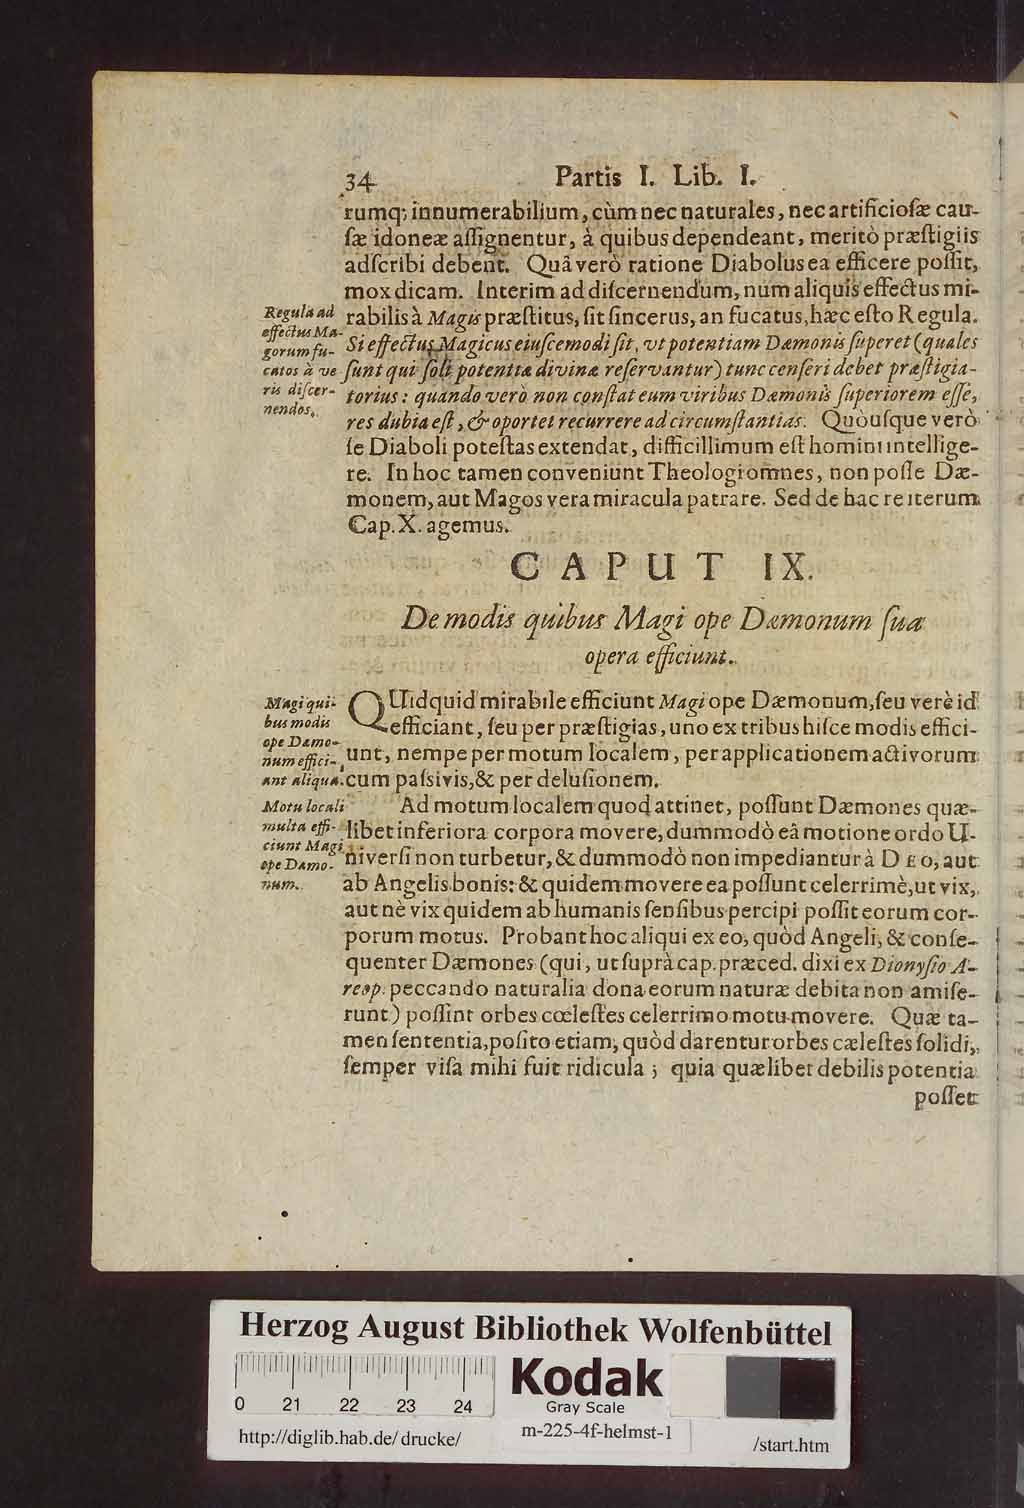 34 Partis I. Lib. I.
rumq; innumerabilium, cùm nec naturales, nec artificioſæ cau-
ſæ idoneæ aſſignentur, à quibus dependeant, meritò præſtigiis
adſcribi debent. Quâ verò ratione Diabolus ea efficere poſſit,
mox dicam. Interim ad diſcernendum, num aliquis effectus mi-
rabilis à Magis præſtitus, ſit ſincerus, an fucatus, hæc eſto Regula.
Si effectus Magicus eiuſcemodi ſit, vt potentiam Dæmonis ſuperet (quales
ſunt qui ſoli potentiæ divinæ reſervantur) tunc cenſeri debet præſtigia-
torius: quando verò non conſtat eum viribus Dæmonis ſuperiorem eſſe,
res dubia eſt, & oportet recurrere ad circumſtantias. Quòuſque verò
ſe Diaboli poteſtas extendat, difficillimum eſt homini intellige-
re. In hoc tamen conveniunt Theologi omnes, non poſſe Dæ-
monem, aut Magos vera miracula patrare. Sed de hac re iterum
Cap. X. agemus.
Regula ad
effectus Ma-
gorum fu-
catos à ve
ris diſcer-
nendos.
CAPUT IX.
De modis quibus Magi ope Dæmonum ſua
opera efficiunt.
Magi qui-
bus modis
ope Dæmo-
num effici-
ant aliqua.
QUidquid mirabile efficiunt Magi ope Dæmonum, ſeu verè id
efficiant, ſeu per præſtigias, uno ex tribus hiſce modis effici-
unt, nempe per motum localem, per applicationem activorum
cum paſsivis, & per deluſionem.
Motu locali
multa effi-
ciunt Magi
ope Dæmo-
num.
Ad motum localem quod attinet, poſſunt Dæmones quæ-
libet inferiora corpora movere, dummodò eâ motione ordo U-
niverſi non turbetur, & dummodò non impediantur à DEO, aut
ab Angelis bonis: & quidem movere ea poſſunt celerrimè, ut vix,
aut nè vix quidem ab humanis ſenſibus percipi poſſit eorum cor-
porum motus. Probant hoc aliqui ex eo, quòd Angeli, & conſe-
quenter Dæmones (qui, ut ſuprà cap. præced. dixi ex Dionyſio A-
reop. peccando naturalia dona eorum naturæ debita non amiſe-
runt) poſſint orbes cœleſtes celerrimo motu movere. Quæ ta-
men ſententia, poſito etiam, quòd darentur orbes cæleſtes ſolidi,
ſemper viſa mihi fuit ridicula; quia quælibet debilis potentia
poſſet
Herzog August Bibliothek Wolfenbüttel
0 21 22 23 24
Kodak
Gray Scale
http://diglib.hab.de/drucke/
m-225-4f-helmst-1
/start.htm